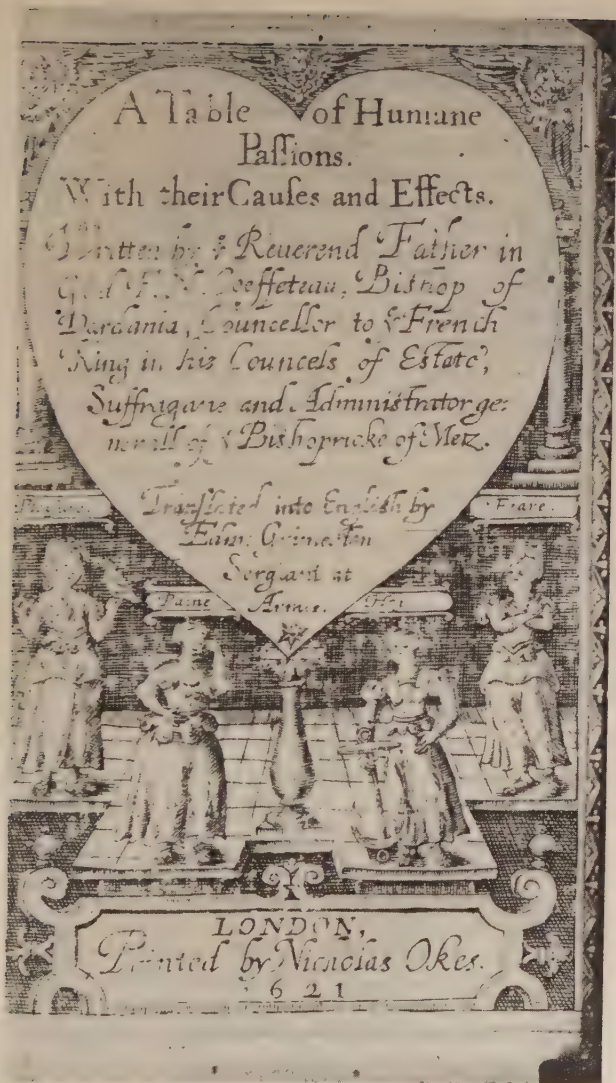 A Table of Humane
Paſſions.
With their Cauſes and Effects.
Written by ẏ Reuerend Father in
God F. N. Coeffeteau, Bishop of
Dardania, Councellor to ẏ French
King in his Councels of Estate,
Suffragane and Administrator ge:
nerall of ẏ Bishopricke of Metz.
Tranſlated into English by
Edw: Grimeston
Sergeant at
Armes.
Feare.
Paine
LONDON,
Printed by Nicholas Okes.
1621